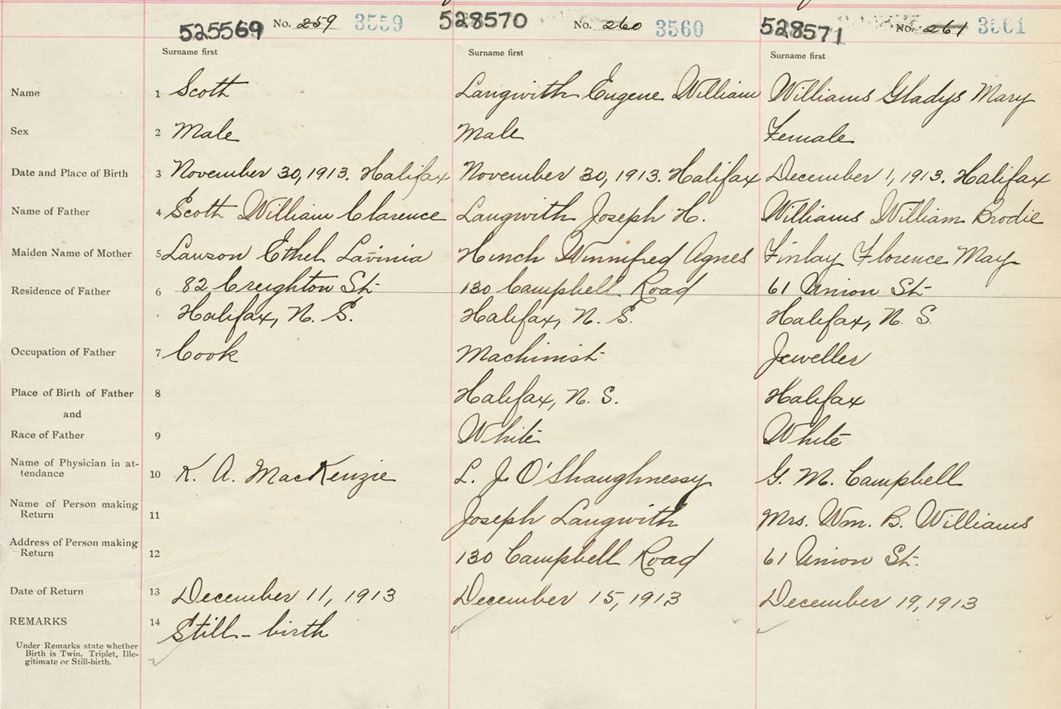 525569 No. 259 3559 528570 No. 260 3560 528571 No. 261 3561
Surname first Surname first Surname first
Name 1 Scoth Langwith Eugene William Williams Gladys Mary
Sex 2 Male Male Female
Date and Place of Birth 3 November 30, 1913. Halifax November 30, 1913. Halifax December 1, 1913. Halifax
Name of Father 4 Scoth William Clarence Langwith Joseph H. Williams William Brodie
Maiden Name of Mother 5 Lawson Ethel Lavinia Hinch Winnifred Agnes Finlay Florence May
Residence of Father 6 82 Creighton St. 130 Campbell Road 61 Union St.
Halifax, N. S. Halifax, N. S. Halifax, N. S.
Occupation of Father 7 Cook Machinist Jeweller
Place of Birth of Father 8 Halifax, N. S. Halifax
and
Race of Father 9 White White
Name of Physician in at-
tendance 10 K. A. MacKenzie L. J. O'Shaughnessy G. M. Campbell
Name of Person making
Return 11 Joseph Langwith Mrs. Wm. B. Williams
Address of Person making
Return 12 130 Campbell Road 61 Union St.
Date of Return 13 December 11, 1913 December 15, 1913 December 19, 1913
REMARKS 14 Still-birth
Under Remarks state whether
Birth is Twin, Triplet, Ille-
gitimate or Still-birth.